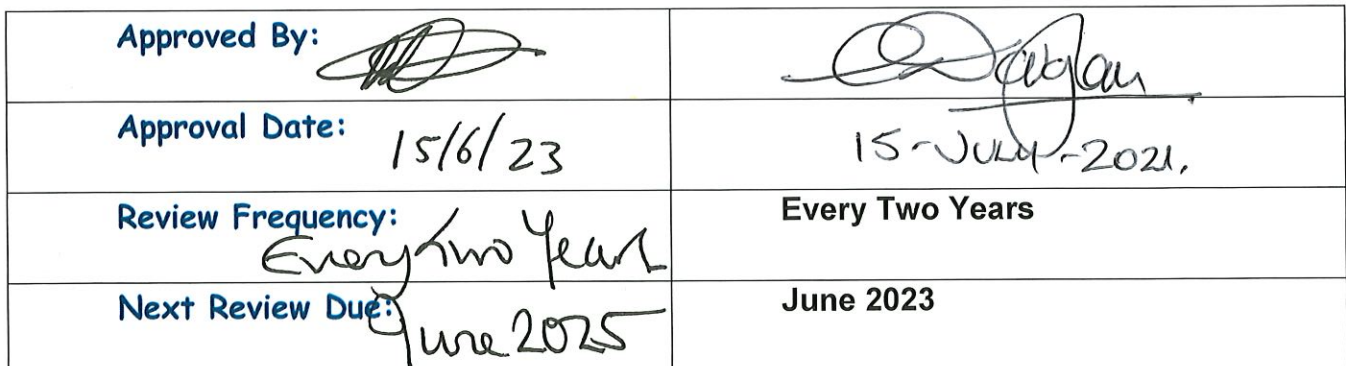 Approved By:
Approval Date: 15/6/23
15-JULY-2021.
Review Frequency: Every Two Years
Every Two Years
Next Review Due: June 2025
June 2023